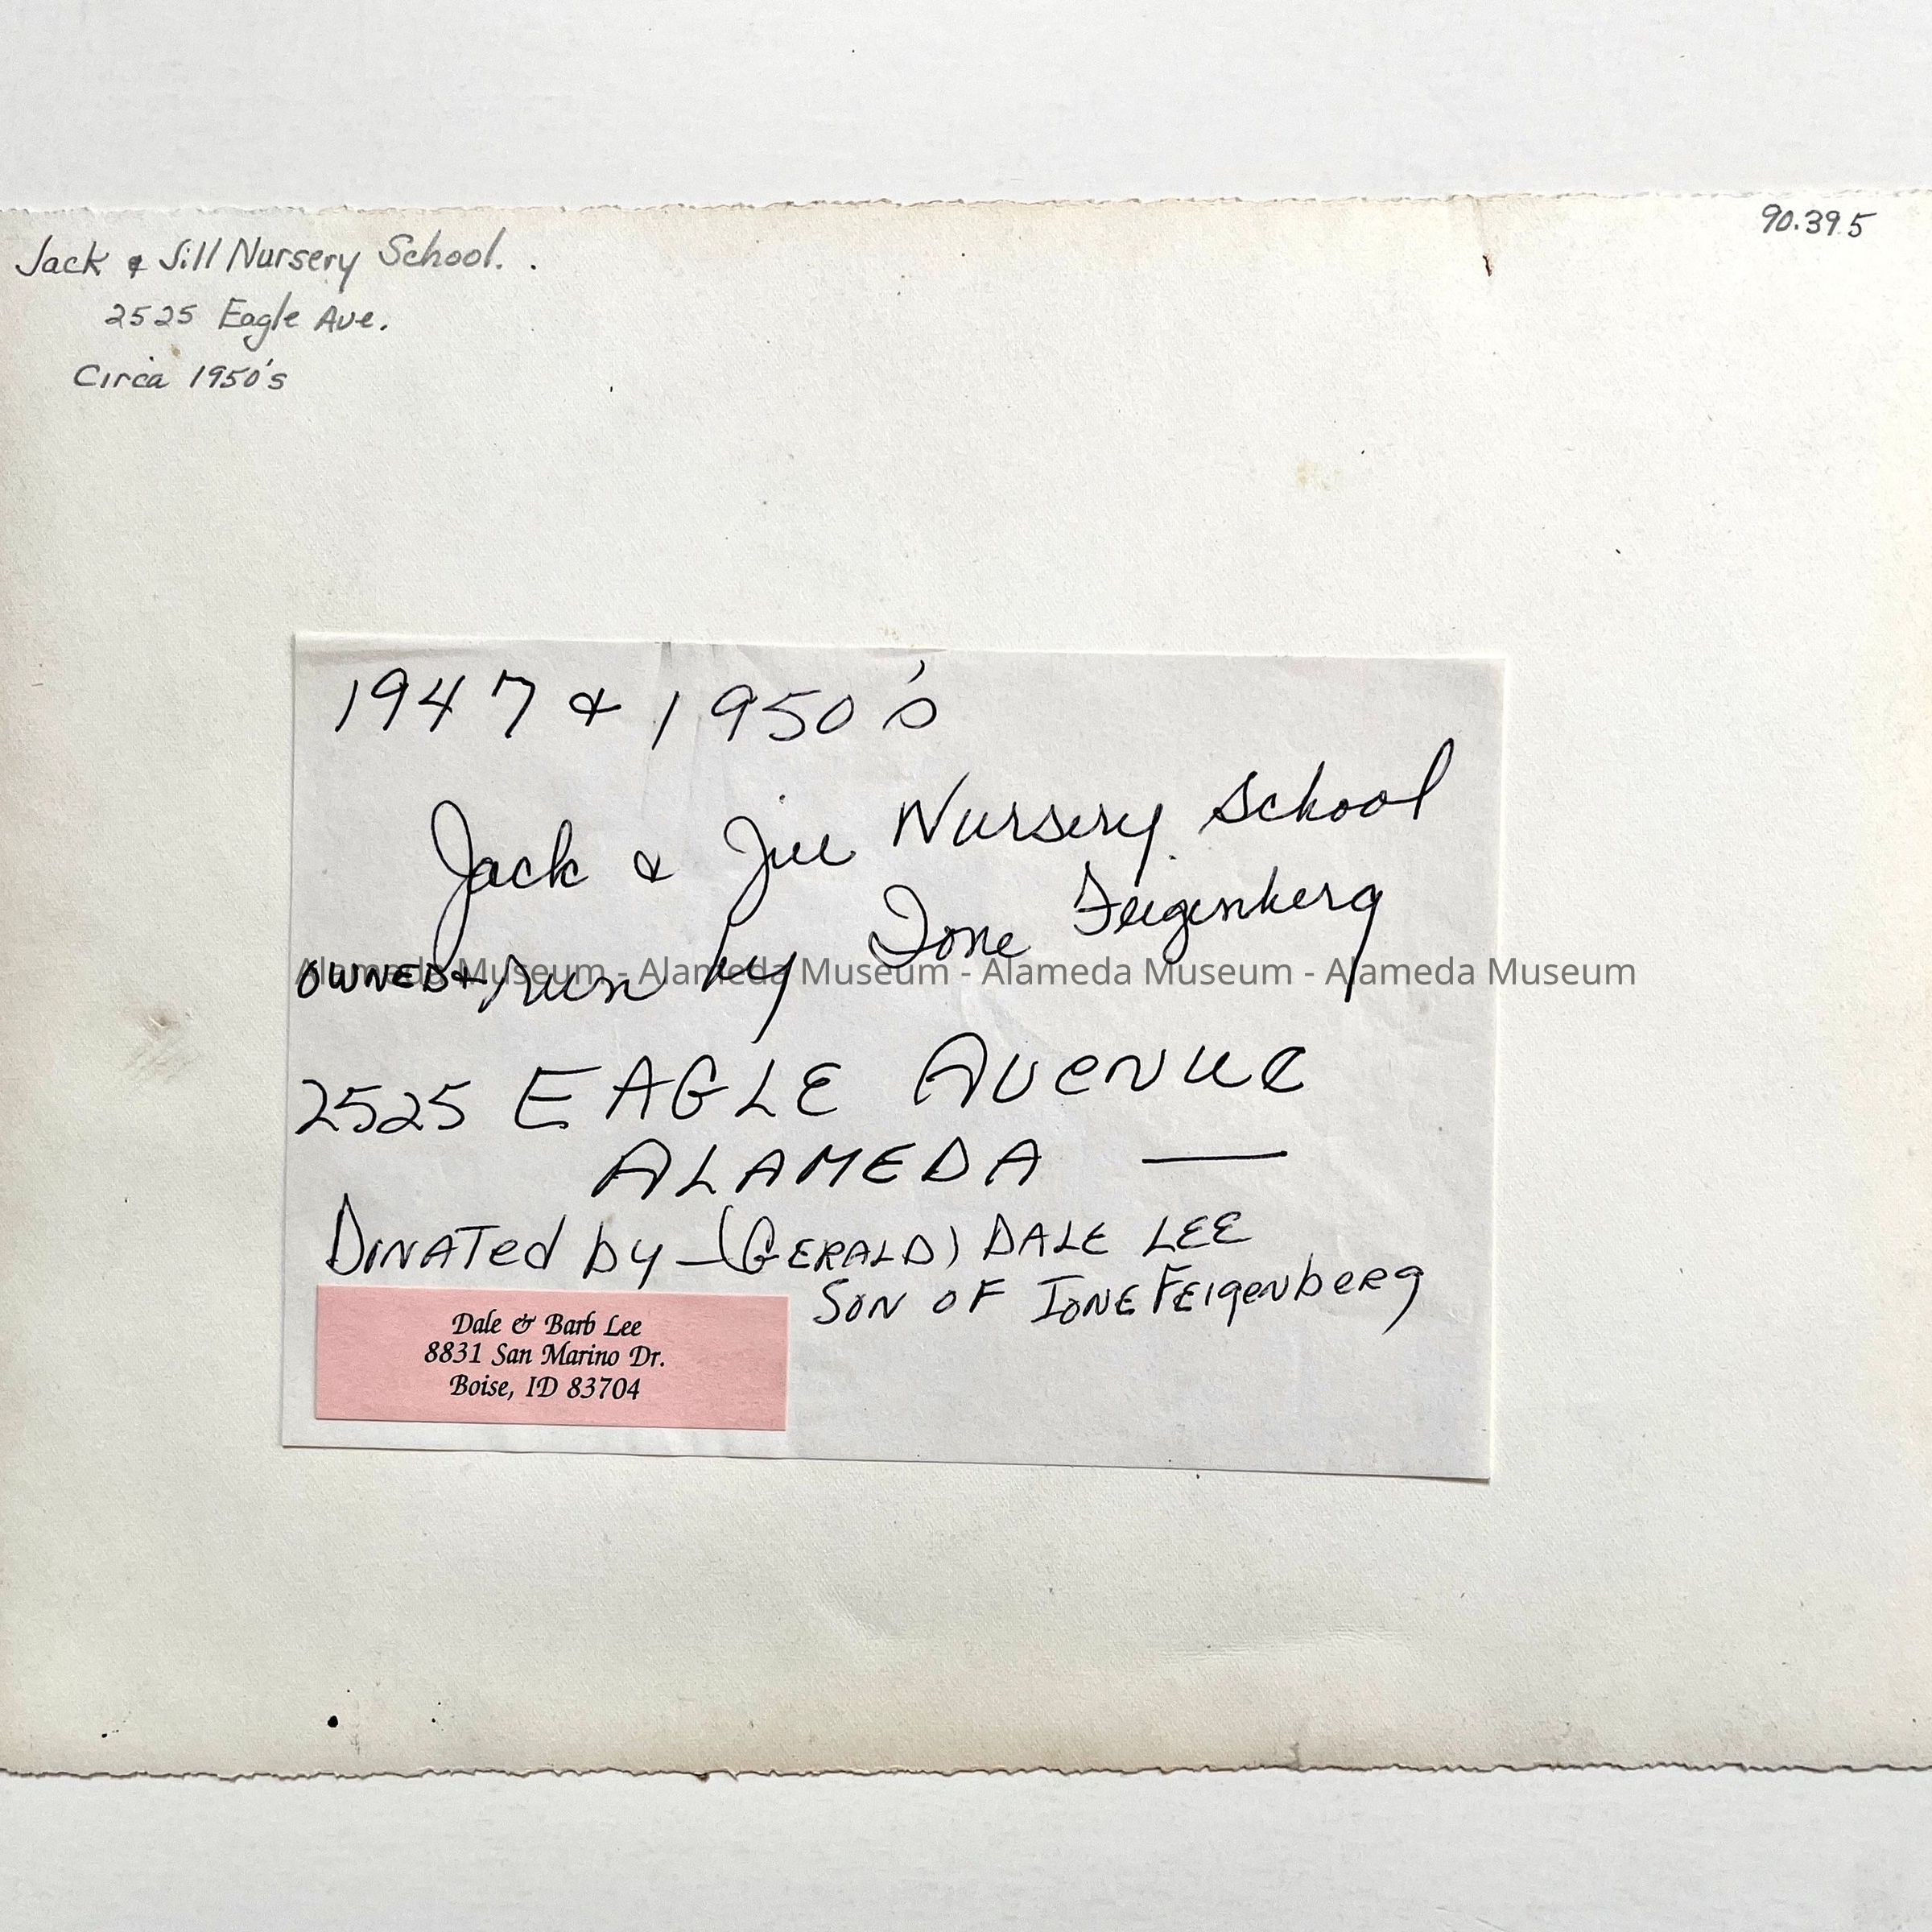 Jack & Jill Nursery School. .
2525 Eagle Ave.
Circa 1950's
90.39.5
1947 & 1950's
Jack & Jill Nursery School
OWNED & run by Ione Feigenberg
Alameda Museum - Alameda Museum - Alameda Museum - Alameda Museum
2525 EAGLE AVENUE
ALAMEDA —
DONATed by — (GERALD) DALE LEE
SON OF IONE FEIgenbeRg
Dale & Barb Lee
8831 San Marino Dr.
Boise, ID 83704